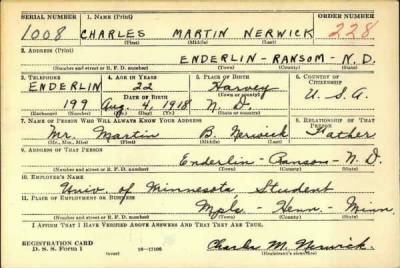 SERIAL NUMBER 1. NAME (Print) ORDER NUMBER
1008 CHARLES MARTIN NERWICK 228
(First) (Middle) (Last)
2. ADDRESS (Print)
ENDERLIN - RANSOM - N.D.
(Number and street or R. F. D. number) (Town) (County) (State)
3. TELEPHONE 4. AGE IN YEARS 5. PLACE OF BIRTH 6. COUNTRY OF CITIZENSHIP
ENDERLIN 22 Harvey
DATE OF BIRTH (Town or county)
199 Aug. 4, 1918 N.D. U.S.A.
(Exchange) (Number) (Mo.) (Day) (Yr.) (State or country)
7. NAME OF PERSON WHO WILL ALWAYS KNOW YOUR ADDRESS 8. RELATIONSHIP OF THAT PERSON
Mr. Martin B. Nerwick Father
(Mr., Mrs., Miss) (First) (Middle) (Last)
9. ADDRESS OF THAT PERSON
Enderlin - Ransom - N.D.
(Number and street or R. F. D. number) (Town) (County) (State)
10. EMPLOYER'S NAME
Univ. of Minnesota Student
11. PLACE OF EMPLOYMENT OR BUSINESS
Mpls - Henn - Minn.
(Number and street or R. F. D. number) (Town) (County) (State)
I AFFIRM THAT I HAVE VERIFIED ABOVE ANSWERS AND THAT THEY ARE TRUE.
REGISTRATION CARD
D. S. S. Form 1 Charles M. Nerwick.
(Registrant's signature)